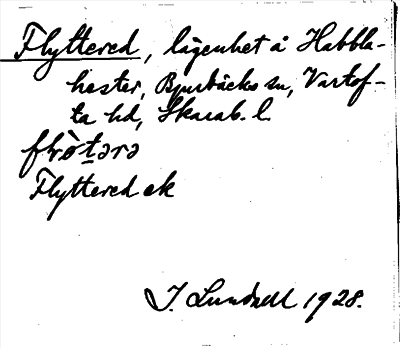 Flyttered, lägenhet å Habbla-
hester, Bjurbäcks sn, Vartof-
ta hd, Skarab. l.
Flyttered ek
J. Lundzell 1928.